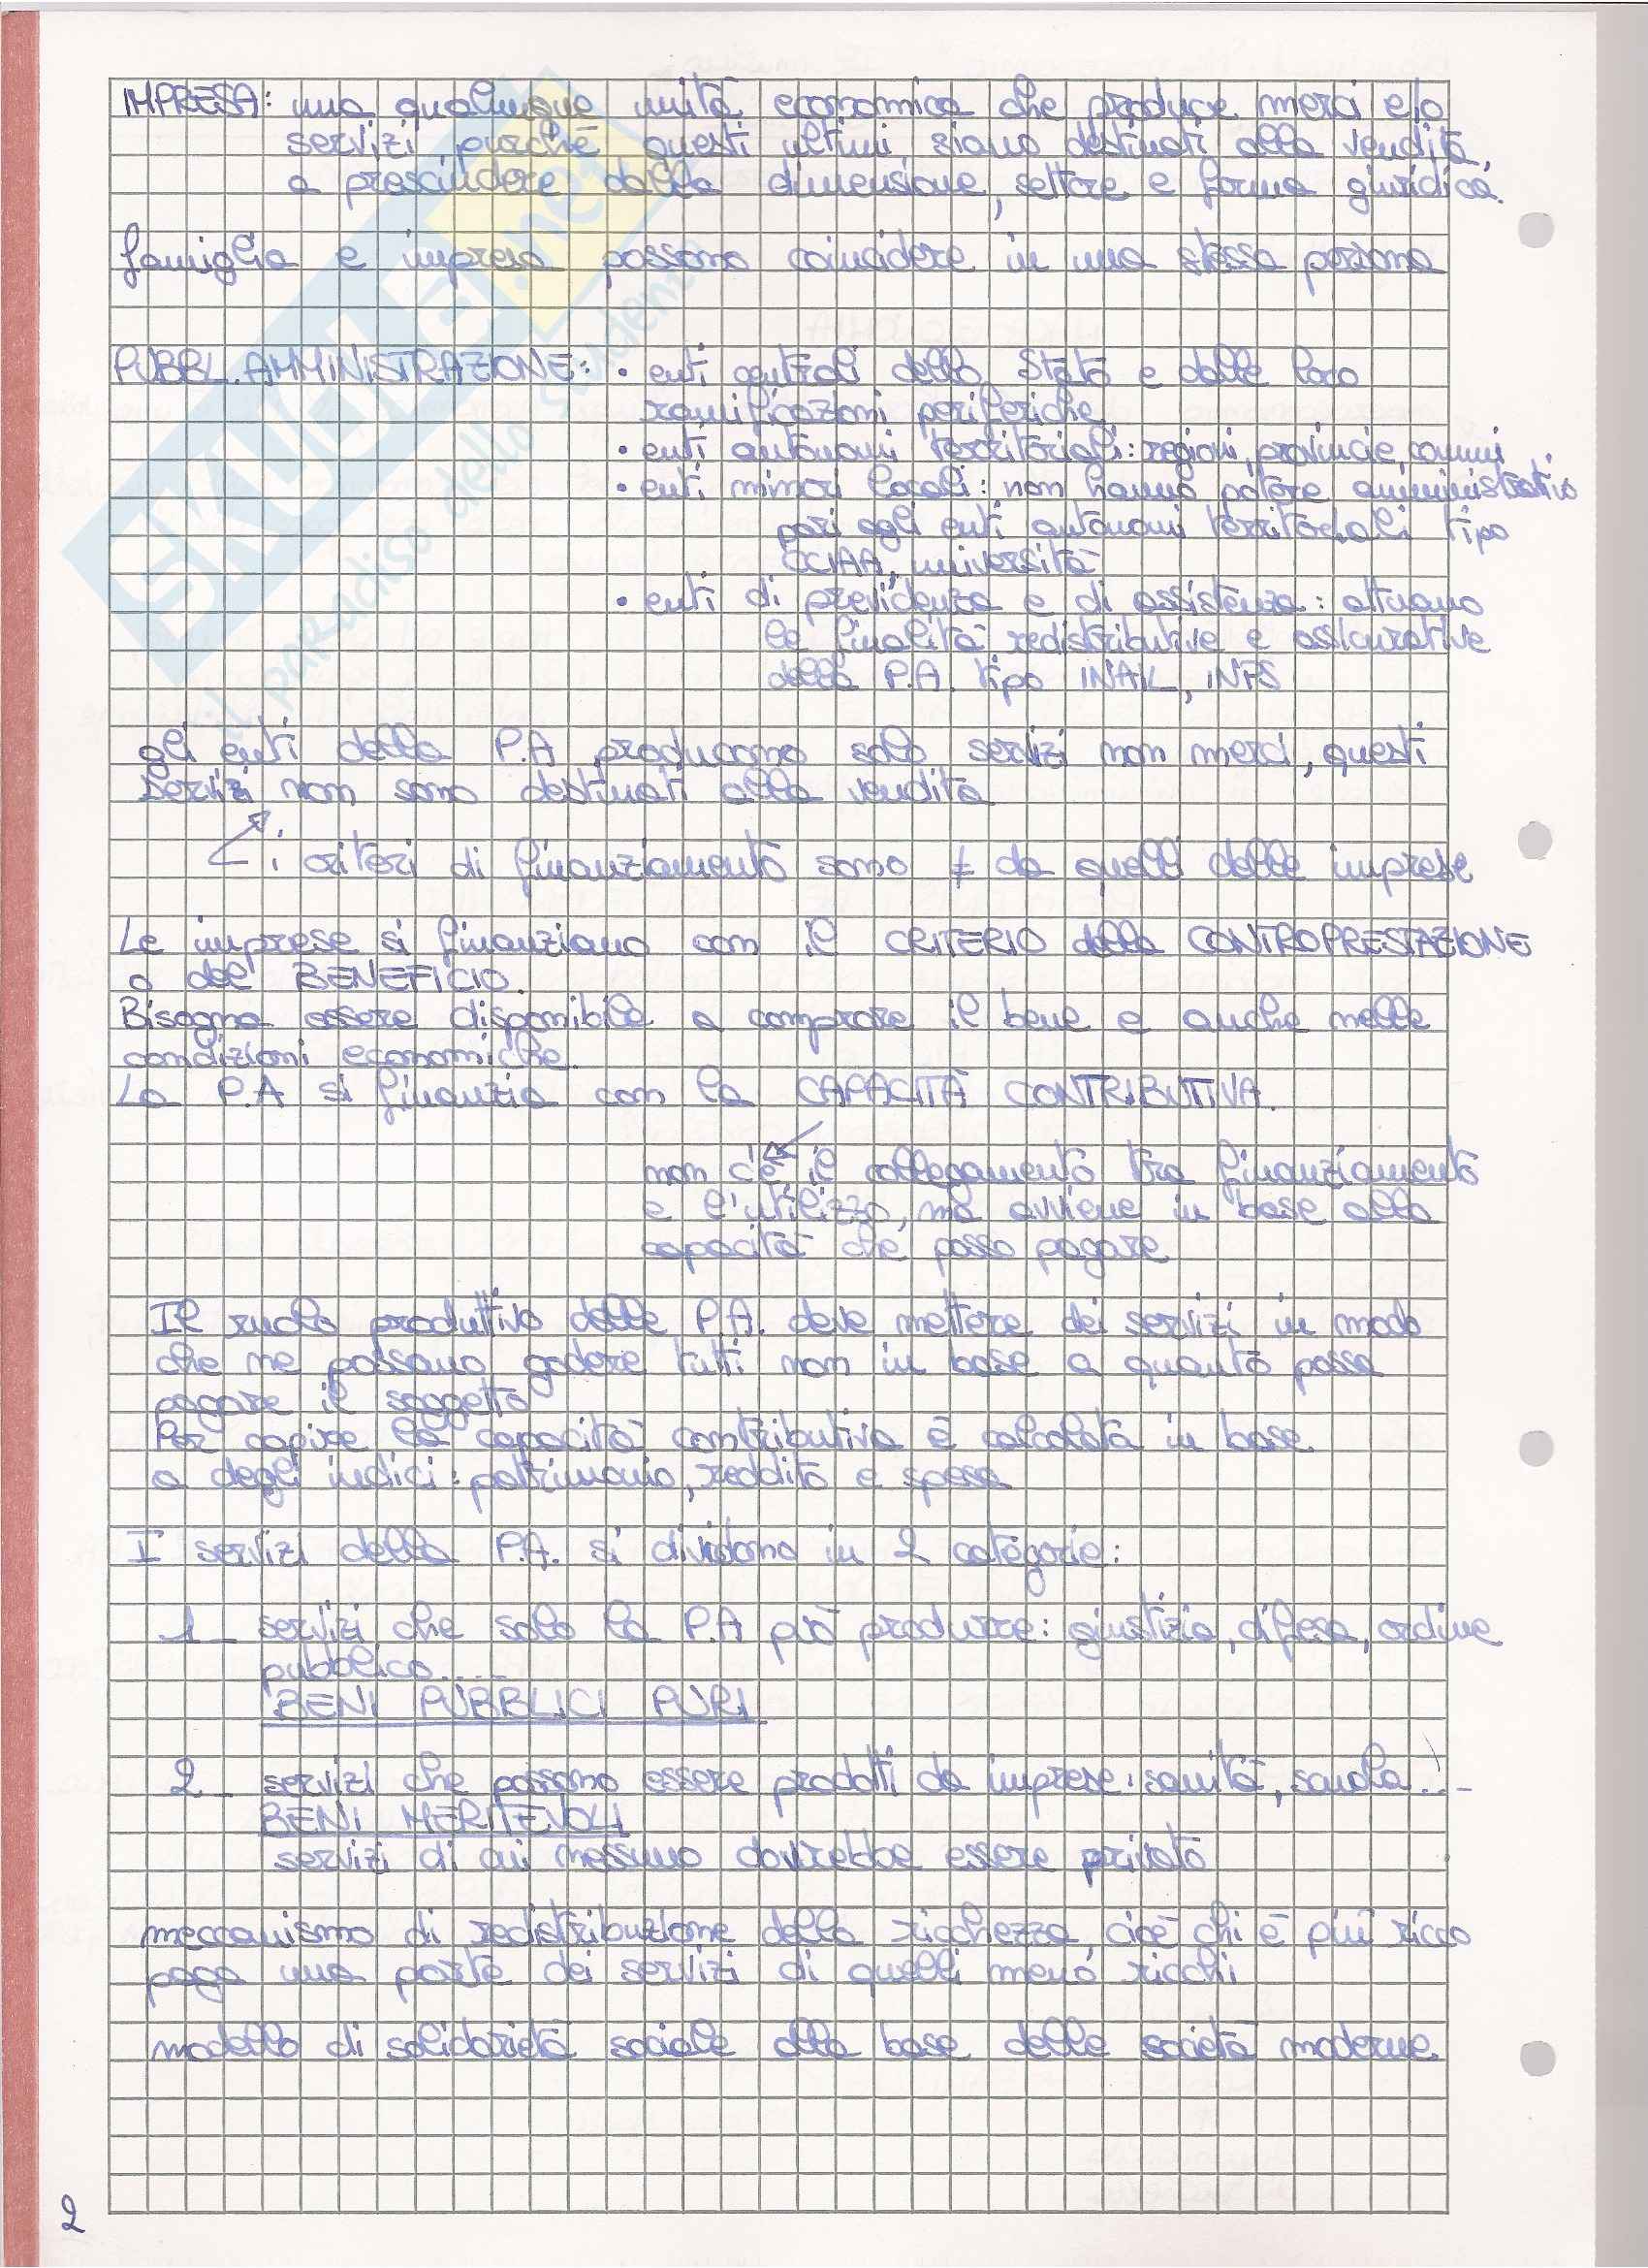 IMPRESA: una qualunque unità economica che produce merci e/o
servizi purchè questi ultimi siano destinati alla vendita,
a prescindere dalla dimensione, settore e forma giuridica.
famiglia e impresa possono coincidere in una stessa persona
PUBBL. AMMINISTRAZIONE: • enti centrali dello Stato e dalle loro
ramificazioni periferiche
• enti autonomi territoriali: regioni, provincie, comuni
• enti minori locali: non hanno potere amministrativo
pari agli enti autonomi territoriali tipo
CCIAA, università
• enti di previdenza e di assistenza: attuano
le finalità redistributive e assicurative
della P.A. tipo INAIL, INPS
gli enti della P.A producono solo servizi non merci, questi
servizi non sono destinati alla vendita
i criteri di finanziamento sono ≠ da quelli delle imprese
Le imprese si finanziano con il CRITERIO della CONTROPRESTAZIONE
o del BENEFICIO.
Bisogna essere disponibile a comprare il bene e anche nelle
condizioni economiche.
La P.A si finanzia con la CAPACITÀ CONTRIBUTIVA.
non c'è il collegamento tra finanziamento
e l'utilizzo, ma avviene in base alla
capacità che posso pagare
Il ruolo produttivo delle P.A. deve mettere dei servizi in modo
che ne possano godere tutti non in base a quanto possa
pagare il soggetto
Per capire la capacità contributiva è calcolata in base
a degli indici: patrimonio, reddito e spesa
I servizi della P.A. si dividono in 2 categorie:
1_ servizi che solo la P.A può produrre: giustizia, difesa, ordine
pubblico.....
BENI PUBBLICI PURI
2_ servizi che possono essere prodotti da imprese: sanità, scuola...
BENI MERITEVOLI
servizi di cui nessuno dovrebbe essere privato
meccanismo di redistribuzione della ricchezza, cioè chi è più ricco
paga una parte dei servizi di quelli meno ricchi
modello di solidarietà sociale alla base delle società moderne
2
SKUOLA.net
il paradiso dello studente